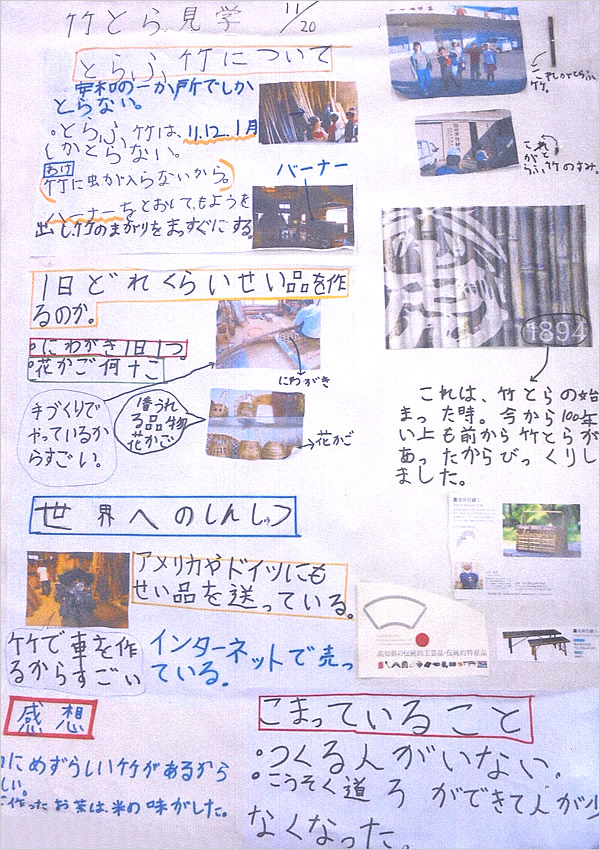 竹とら見学 11/20
とらふ竹について
安和の一か所でしか
とらない。
。とらふ竹は、11.12.1月
しかとらない。
わけ
竹に虫が入らないから。
バーナーをとおして、もようを
出し、竹のまがりをまっすぐにする。
バーナー
これがとらふ竹。
これが
とらふ竹のすみ。
1日どれくらいせい品を作
るのか。
。にわがき1日1つ。
。花かご何十こ
手づくりで
やっているか
らすごい。
1番うれ
る品物
花かご
にわがき
花かご
1894
これは、竹とらの始
まった時。今から100年
い上も前から竹とらが
あったからびっくりし
ました。
世界へのしんしゅつ
アメリカやドイツにも
せい品を送っている。
竹で車を作
るからすごい
インターネットで売っ
ている。
高知県の伝統的工芸品・伝統的特産品
感想
にめずらしい竹があるから
しい。
作ったお茶は、米の味がした。
こまっていること
。つくる人がいない。
。こうそく道ろができて人が少
なくなった。